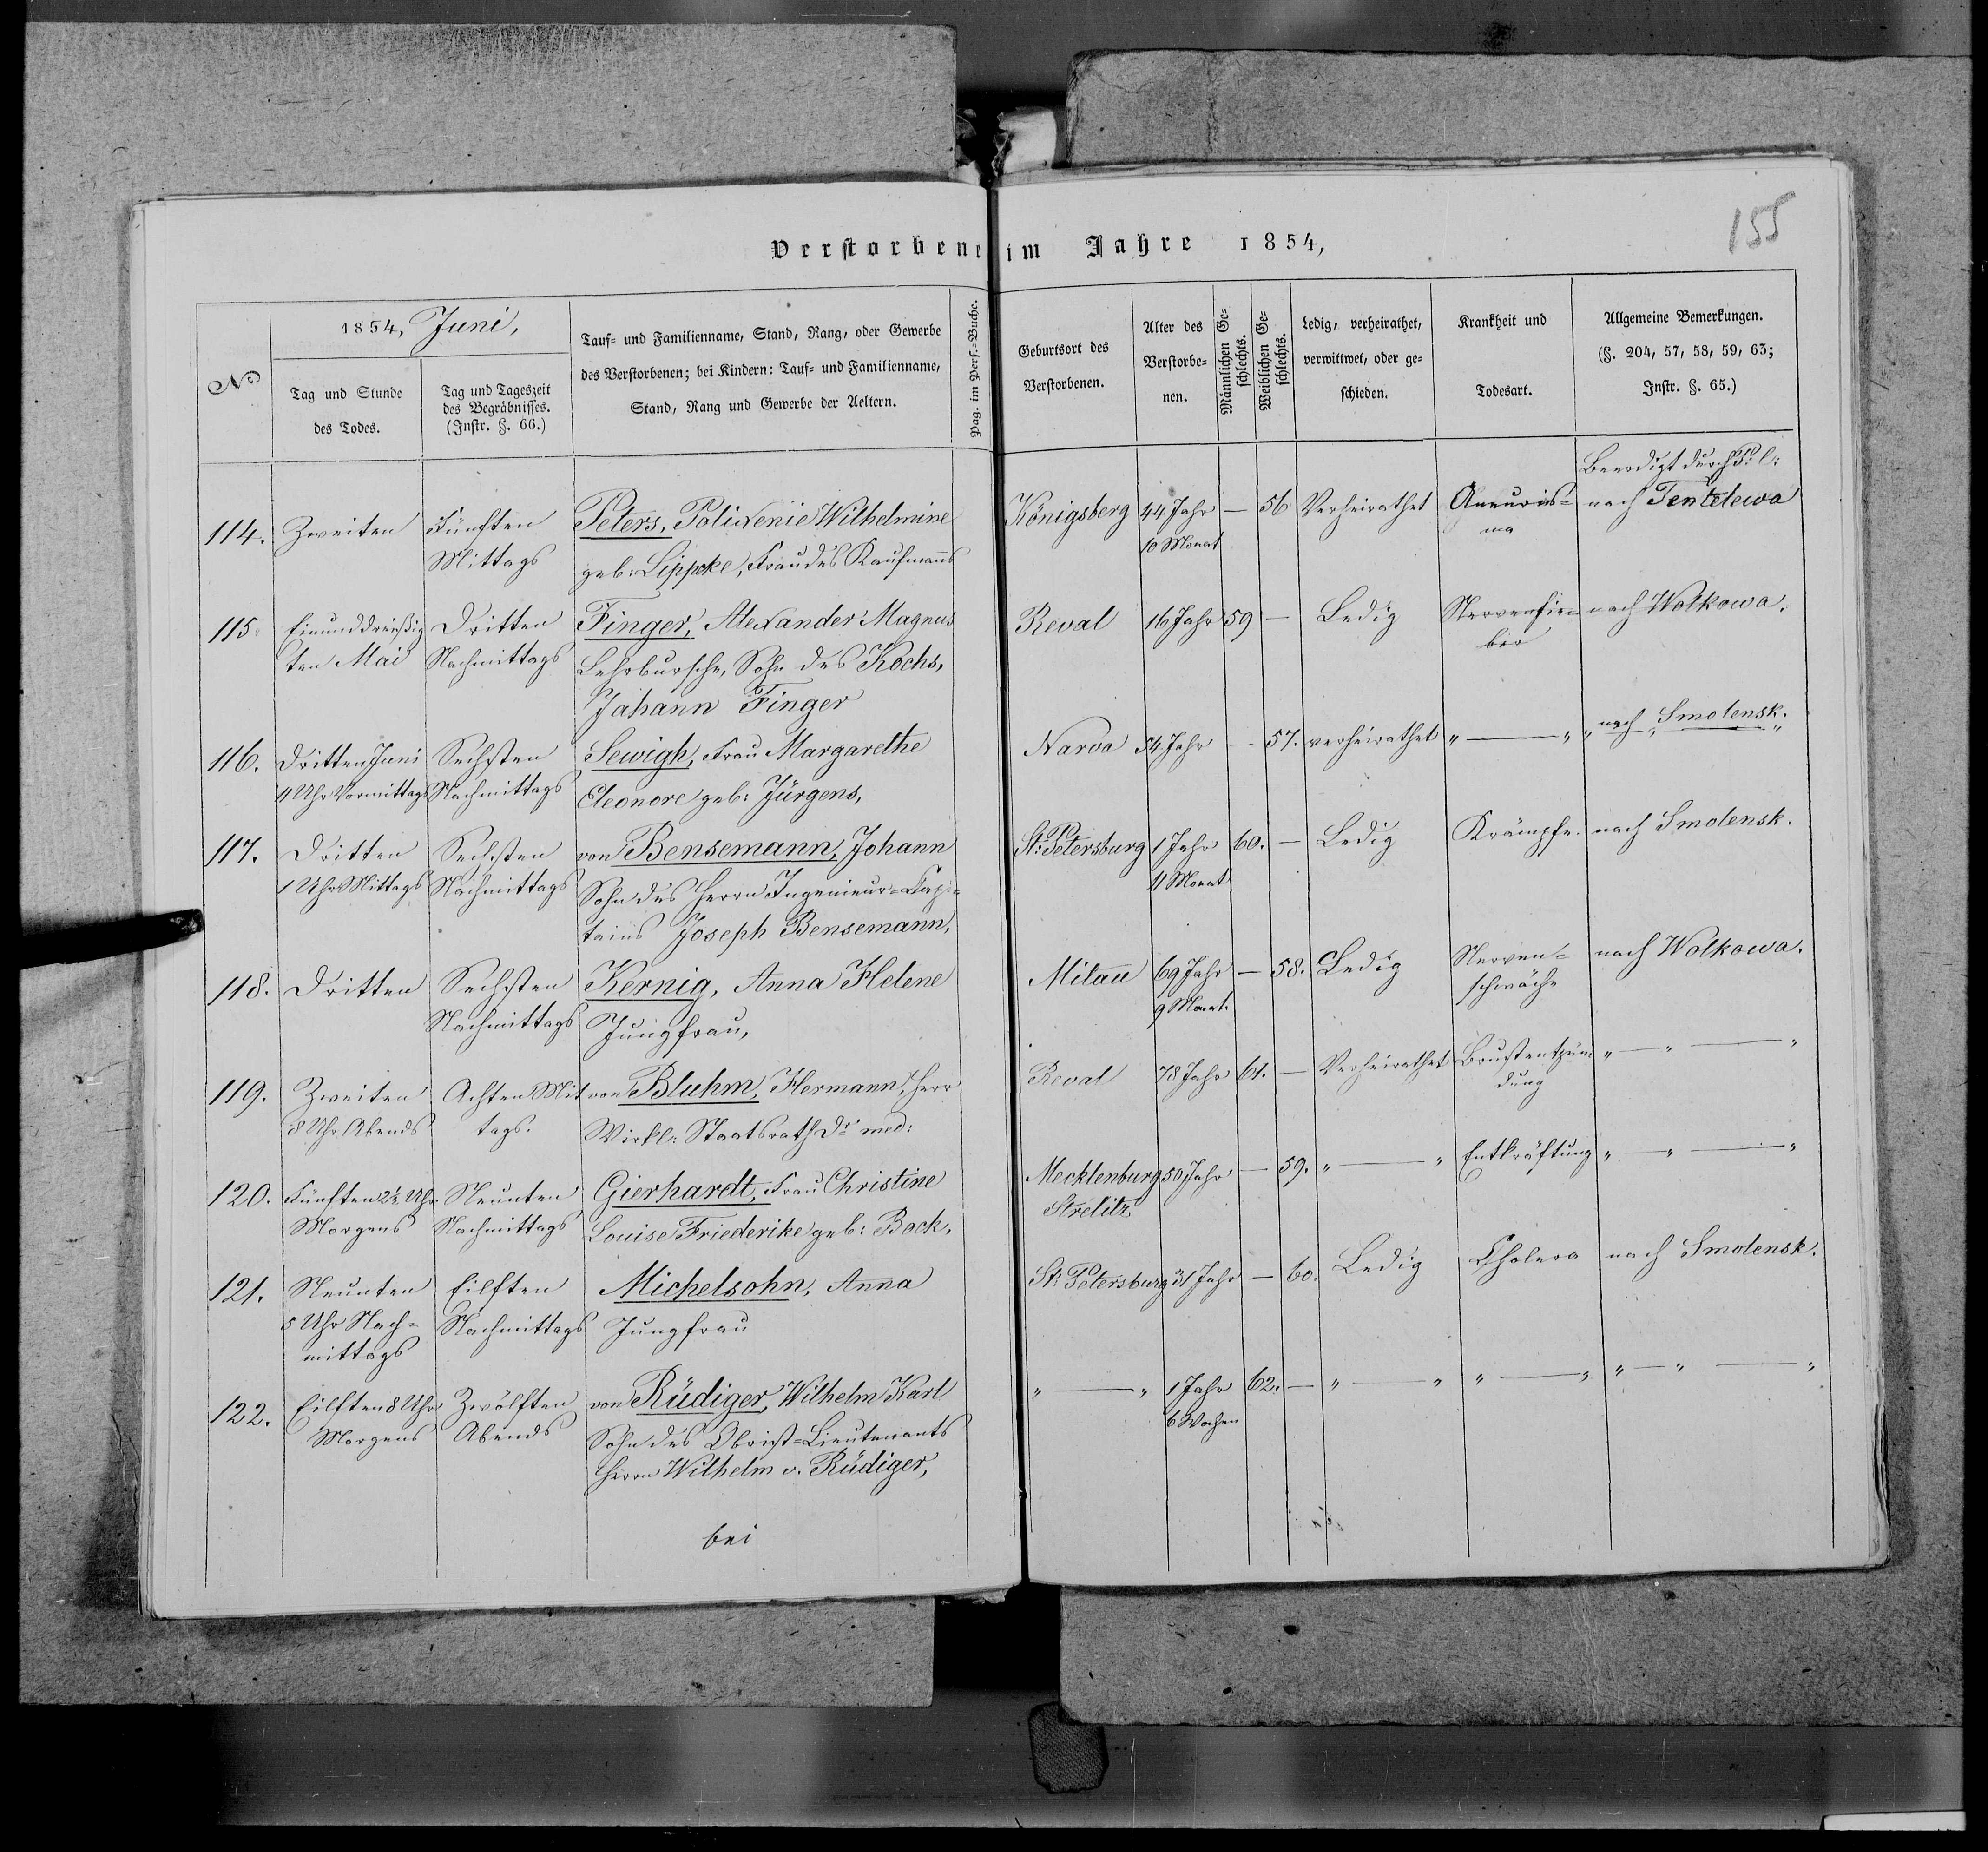 155
Verstorbene im Jahre 1854,
No
1854, Juni,
Tag und Stunde
des Todes.
Tag und Tageszeit
des Begräbnisses.
(Instr. §. 66.)
Tauf- und Familienname, Stand, Rang, oder Gewerbe
des Verstorbenen; bei Kindern: Tauf- und Familienname,
Stand, Rang und Gewerbe der Aeltern.
Pag. im Pers.-Buche.
Geburtsort des
Verstorbenen.
Alter des
Verstorbe-
nen.
Männlichen Ge-
schlechts.
Weiblichen Ge-
schlechts.
Ledig, verheirathet,
verwittwet, oder ge-
schieden.
Krankheit und
Todesart.
Allgemeine Bemerkungen.
(§. 204, 57, 58, 59, 63;
Instr. §. 65.)
114.
Zweiten
Fünften
Mittags
Peters, Polixenie Wilhelmine
geb: Lippcke, Frau des Kaufmanns
Königsberg
44 Jahr
10 Monat
— 56
Verheirathet
Aneuris-
ma
Beerdigt durch
nach Tentelewa
115.
Einunddreißig
ten Mai
Dritten
Nachmittags
Finger, Alexander Magnus
Lehrbursche, Sohn des Kochs,
Johann Finger
Reval
16 Jahr
59 —
Ledig
Nervenfie-
ber
nach Wolkowa.
116.
Dritten Juni
4 Uhr Vormittags
Sechsten
Nachmittags
Sewigh, Frau Margarethe
Eleonore geb: Jürgens,
Narva
54 Jahr
— 57.
verheirathet
" — "
nach Smolensk.
117.
Dritten
1 Uhr Mittags
Sechsten
Nachmittags
von Bensemann, Johann
Sohn des Herrn Ingenieur-Capi-
tains Joseph Bensemann,
St: Petersburg
1 Jahr
11 Monat
60. —
Ledig
Krämpfe.
nach Smolensk.
118.
Dritten
Sechsten
Nachmittags
Kernig, Anna Helene
Jungfrau,
Mitau
69 Jahr
9 Monat.
— 58.
Ledig
Nerven-
schwäche
nach Wolkowa.
119.
Zweiten
8 Uhr Abends
Achten Mit
tags.
von Bluhm, Hermann, Herr
Wirkl: Staatsrath Dr med:
Reval
78 Jahr
61. —
Verheirathet
Brustentzün
dung
" — " — "
120.
Fünften 2½ Uhr
Morgens
Neunten
Nachmittags
Gierhardt, Frau Christine
Louise Friederike geb: Bock,
Mecklenburg
Strelitz
50 Jahr
— 59.
" — "
Entkräftung
" — " — "
121.
Neunten
5 Uhr Nach-
mittags
Eilften
Nachmittags
Michelsohn, Anna
Jungfrau
St: Petersburg
31 Jahr
— 60.
Ledig
Cholera
nach Smolensk.
122.
Eilften 8 Uhr
Morgens
Zwölften
Abends
von Rüdiger, Wilhelm Karl
Sohn des Obrist-Lieutenants
Herrn Wilhelm v. Rüdiger,
" — "
1 Jahr
6 Wochen
62. —
" — "
" — "
" — " — "
bei